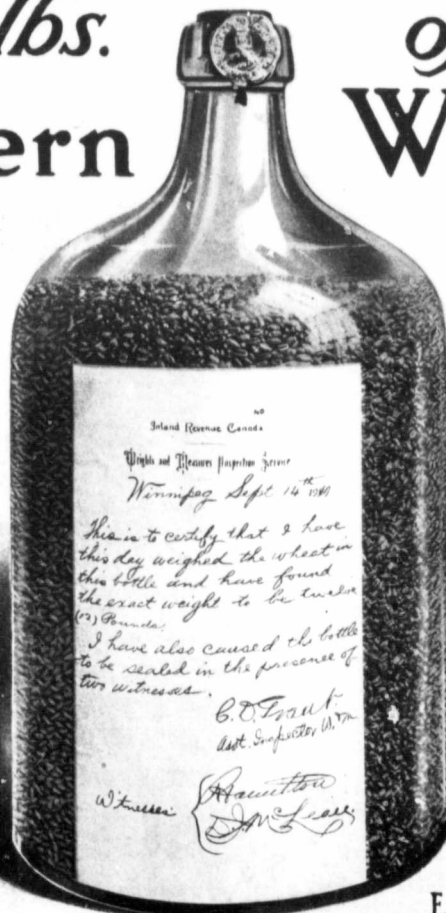 lbs.
ern W
40
Inland Revenue Canada
Weights and Measures Inspection Service
Winnipeg Sept 14th
This is to certify that I have
this day weighed the wheat in
this bottle and have found
the exact weight to be twelve
(12) Pounds.
I have also caused the bottle
to be sealed in the presence of
two witnesses.
C. D.
Asst. Inspector W. & M.
Witnesses Hamilton